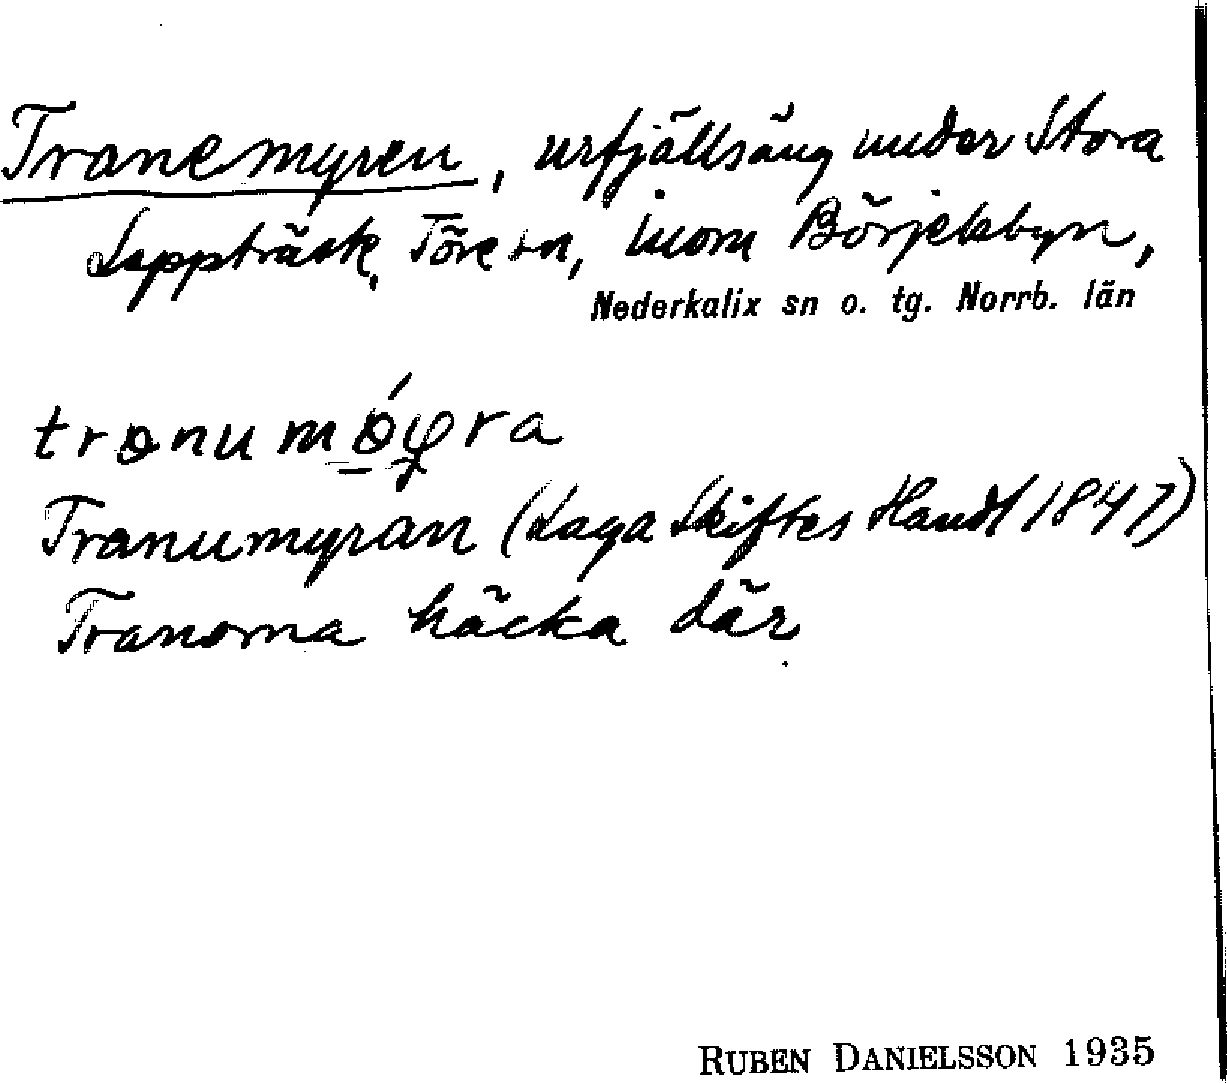 Tranemyren, urfjällsäng under Stora
Lappträsk, Töre sn, inom Börjelsbyn,
Nederkalix sn o. tg. Norrb. län
Tranumyran (Laga Skiftes Handl 1847)
Tranorna häcka där
RUBEN DANIELSSON 1935